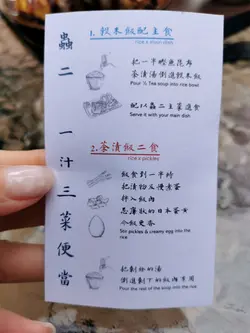 蟲二 一汁三菜便當
1. 穀米飯配主食
rice x main dish
把一半鰹魚昆布
茶漬湯倒進穀米飯
Pour ½ Tea soup into rice bowl
配以蟲二主菜進食
Serve it with your main dish
2. 茶漬飯二食
rice x pickles
飯食到一半時
把漬物及慢煮蛋
拌入飯內
忌廉狀的日本蛋女
令飯更香
Stir pickles & creamy egg into the
rice
把剩餘的湯
倒進剩下的飯內享用
Pour the rest of the soup into the rice